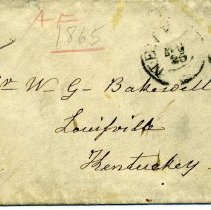 A F
1865
NEW
25
W. G. Bakewell
Louisville
Kentucky